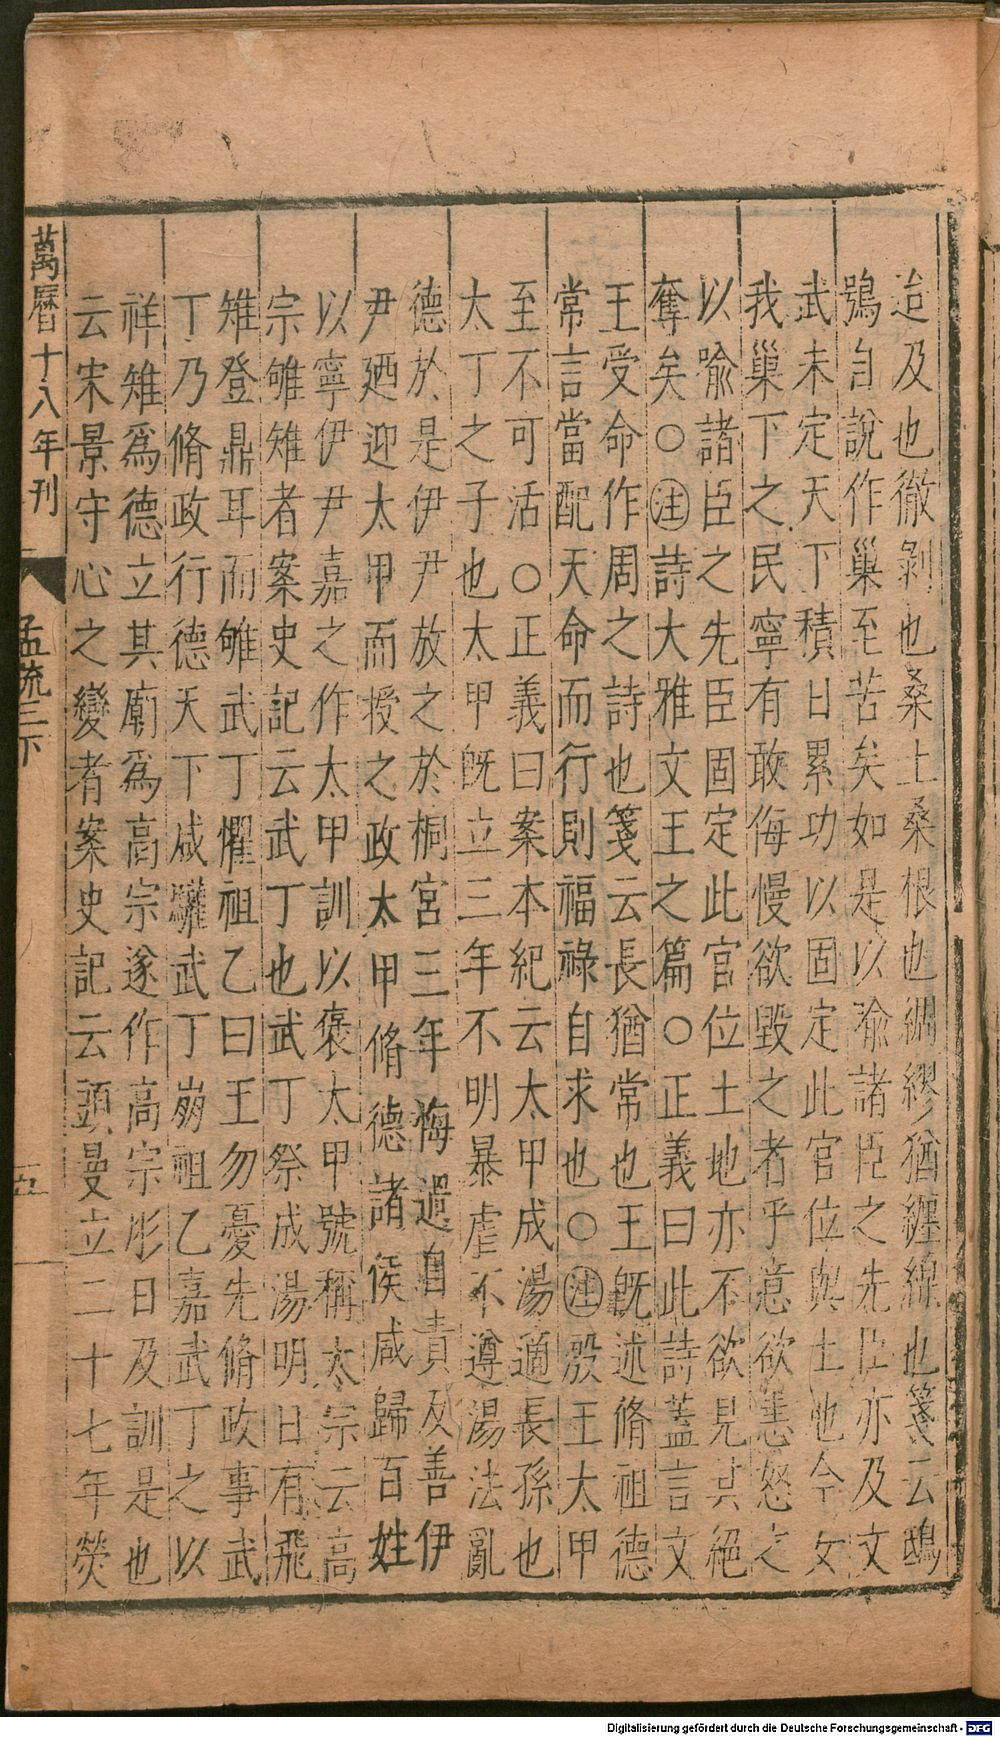 迨及也徹剥也桑土桑根也綢繆猶纏綿也箋云鴟
鴞自說作巢至苦矣如是以喻諸臣之先臣亦及文
武未定天下積日累功以固定此官位與土地今女
我巢下之民寧有敢侮慢欲毀之者乎意欲恚怒之
以喻諸臣之先臣固定此官位土地亦不欲見其絕
奪矣○注詩大雅文王之篇○正義曰此詩蓋言文
王受命作周之詩也箋云長猶常也王既述脩祖德
常言當配天命而行則福祿自求也○注殷王太甲
至不可活○正義曰案本紀云太甲成湯適長孫也
太丁之子也太甲既立三年不明暴虐不遵湯法亂
德於是伊尹放之於桐宮三年悔過自責反善伊
尹廼迎太甲而授之政太甲脩德諸侯咸歸百姓
以寧伊尹嘉之作太甲訓以褒太甲號稱太宗云高
宗雊雉者案史記云武丁也武丁祭成湯明日有飛
雉登鼎耳而雊武丁懼祖乙曰王勿憂先脩政事武
丁乃脩政行德天下咸驩武丁崩祖乙嘉武丁之以
祥雉爲德立其廟爲高宗遂作高宗肜日及訓是也
云宋景守心之變者案史記云頭曼立二十七年熒
萬曆十八年刊
孟疏三下
五
Digitalisierung gefördert durch die Deutsche Forschungsgemeinschaft - DFG